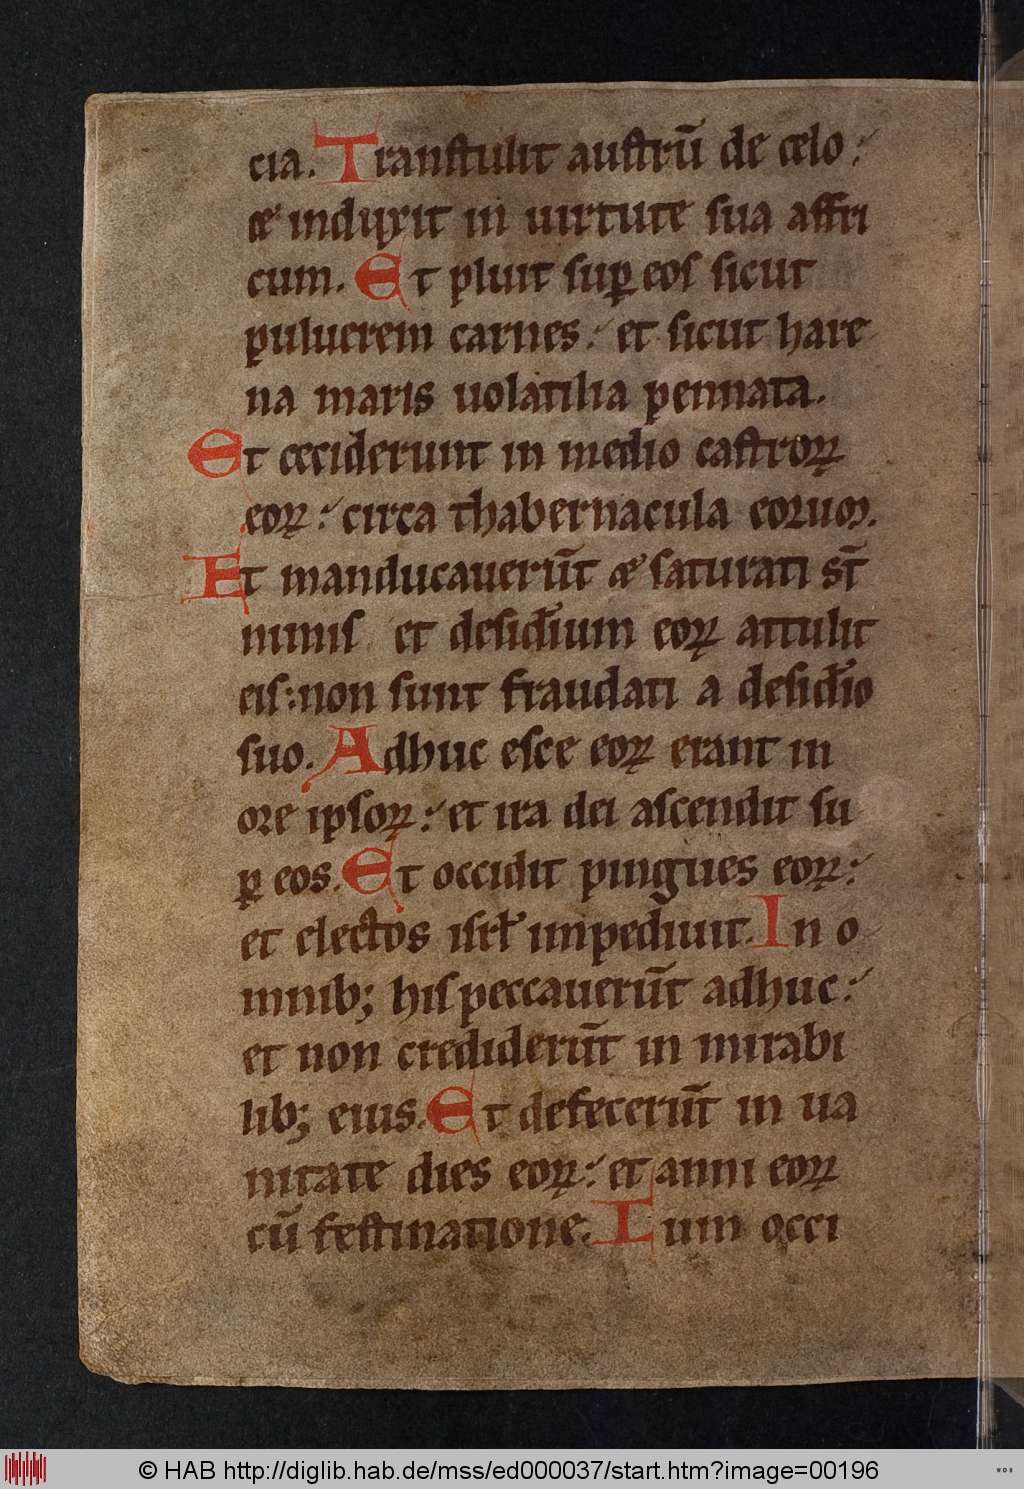 cia. Tranſtulit auſtrū de celo :
⁊ induxit in uirtute sua affri
cum. Et pluit ſuꝑ eoſ ſicut
puluerem carnes : et ſicut hare
na maris uolatilia pennata.
Et ceciderunt in medio caſtroꝝ
eoꝝ : circa thabernacula eorum.
Et manducauerūt ⁊ ſaturati st̄
nimiſ et deſid̾ium eoꝝ attulit
eiſ : non ſunt fraudati a deſid̾io
ſuo. Adhuc eſce eoꝝ erant in
ore ipſoꝝ : et ira dei aſcendit ſu
ꝑ eos. Et occidit pingues eoꝝ :
et electos iſrl̾ impediuit. In o
mnib; hiſ peccauerūt adhuc :
et non crediderūt in mirabi
lib; eius. Et defecerūt in ua
nitate dies eoꝝ : et anni eoꝝ
cū feſtinatione. Cum occi
© HAB http://diglib.hab.de/mss/ed000037/start.htm?image=00196